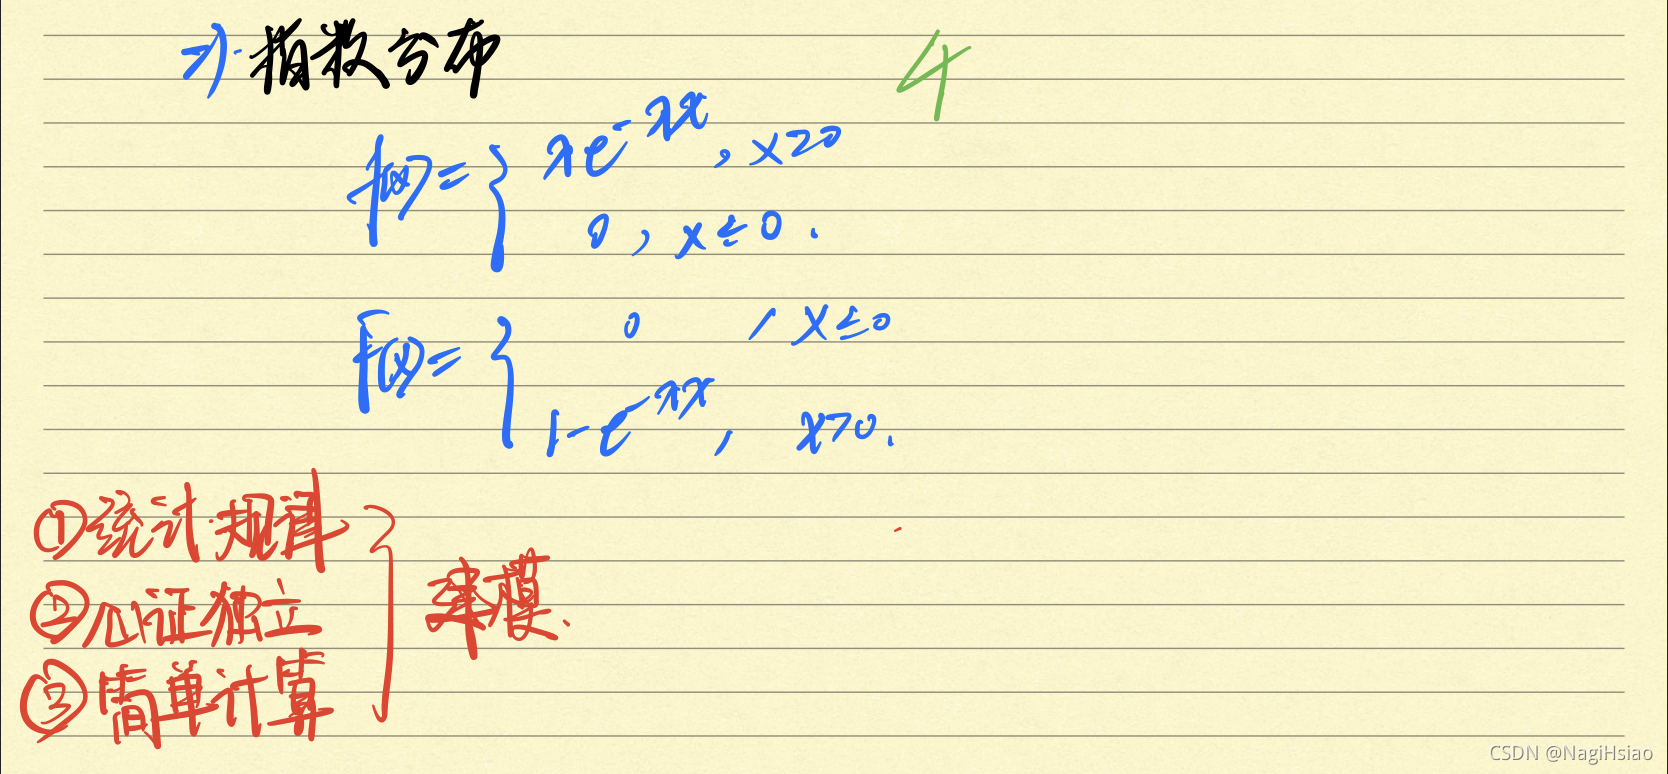 7). 指数分布
4
f(x)= { λe^{-λx}, x≥0
0, x≤0.
F(x)= { 0, x≤0
1-e^{-λx}, x>0.
①统计规律
②心证独立
③简单计算
} 建模.
CSDN @NagiHsiao